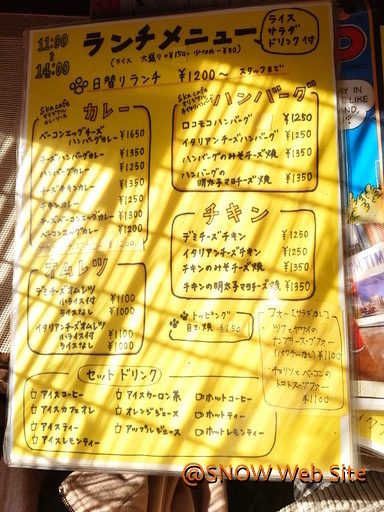 11:00
〜
14:00
ランチメニュー
(ライス 大盛り+¥150、少なめ-¥50)
ライス
サラダ
ドリンク付
日替りランチ ¥1200〜 スタッフまで
Ska cafe
カレー
ベーコンエッグチーズ
ハンバーグカレー ¥1650
チーズハンバーグカレー ¥1350
ハンバーグカレー ¥1250
チーズチキンカレー ¥1350
チキンカレー ¥1250
チーズベーコンエッグカレー ¥1300
ベーコンエッグカレー ¥1200
オムレツ
デミチーズオムレツ
小ライス付 ¥1100
ライスなし ¥1000
イタリアンチーズオムレツ
小ライス付 ¥1100
ライスなし ¥1000
Ska cafe
ハンバーグ
ロコモコハンバーグ ¥1250
イタリアンチーズハンバーグ ¥1250
ハンバーグのみそチーズ焼 ¥1350
ハンバーグの
明太子マヨチーズ焼 ¥1350
チキン
デミチーズチキン ¥1250
イタリアンチーズチキン ¥1250
チキンのみそチーズ焼 ¥1350
チキンの明太子マヨチーズ焼 ¥1350
トッピング
目玉焼 ¥150
フォー(サラダなし)
・ツナとヤサイの
(パクチーなし) ¥1100
・チョリソとベーコンの
トマトスープフォー
¥1100
セットドリンク
アイスコーヒー
アイスカフェオレ
アイスティー
アイスレモンティー
アイスウーロン茶
オレンジジュース
アップルジュース
ホットコーヒー
ホットティー
ホットレモンティー
@SNOW Web Site